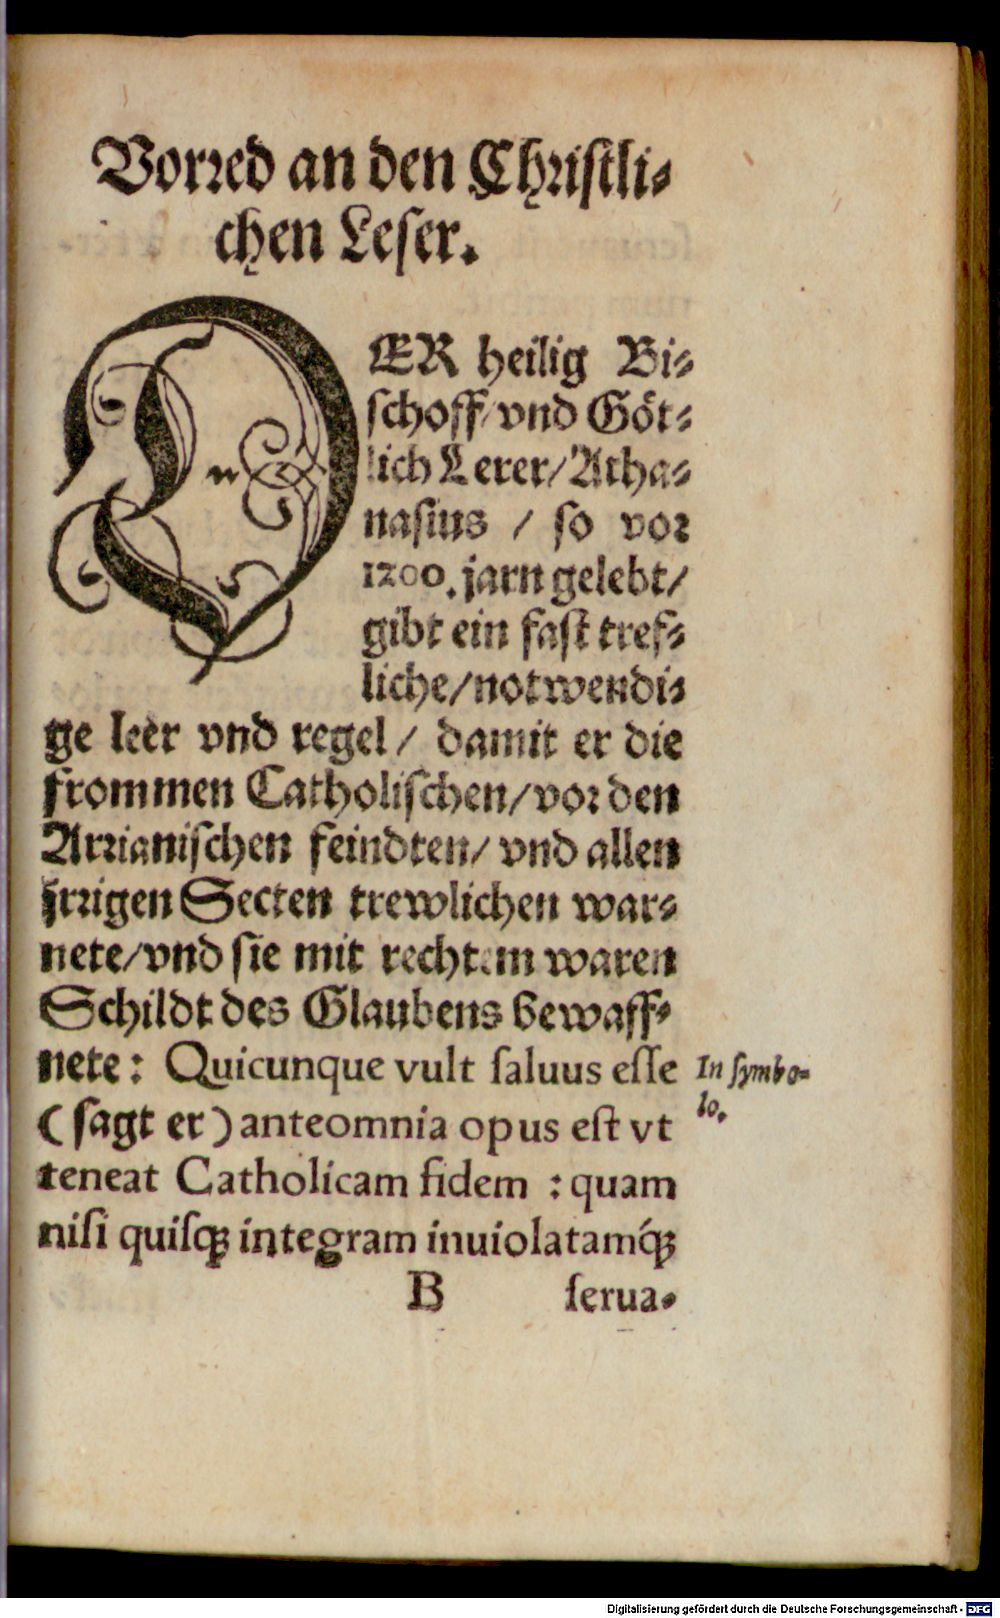 Vorꝛed an den Chꝛiſtli⸗
chen Leſer.
DER heilig Bi⸗
ſchoff/ vnd Göt⸗
lich Lerer/ Atha⸗
naſius / ſo voꝛ
1200. jarn gelebt/
gibt ein faſt tref⸗
liche/ notwendi⸗
ge leer vnd regel / damit er die
frommen Catholiſchen/ voꝛ den
Arꝛianiſchen feindten/ vnd allen
jrꝛigen Secten trewlichen war⸗
nete/ vnd ſie mit rechtem waren
Schildt des Glaubens bewaff⸗
nete: Quicunque vult ſaluus eſſe
In ſymbo⸗
lo.
( ſagt er ) anteomnia opus eſt vt
teneat Catholicam fidem : quam
niſi quiſqꝫ integram inuiolatamq́ꝫ
B ſerua⸗
Digitalisierung gefördert durch die Deutsche Forschungsgemeinschaft - DFG